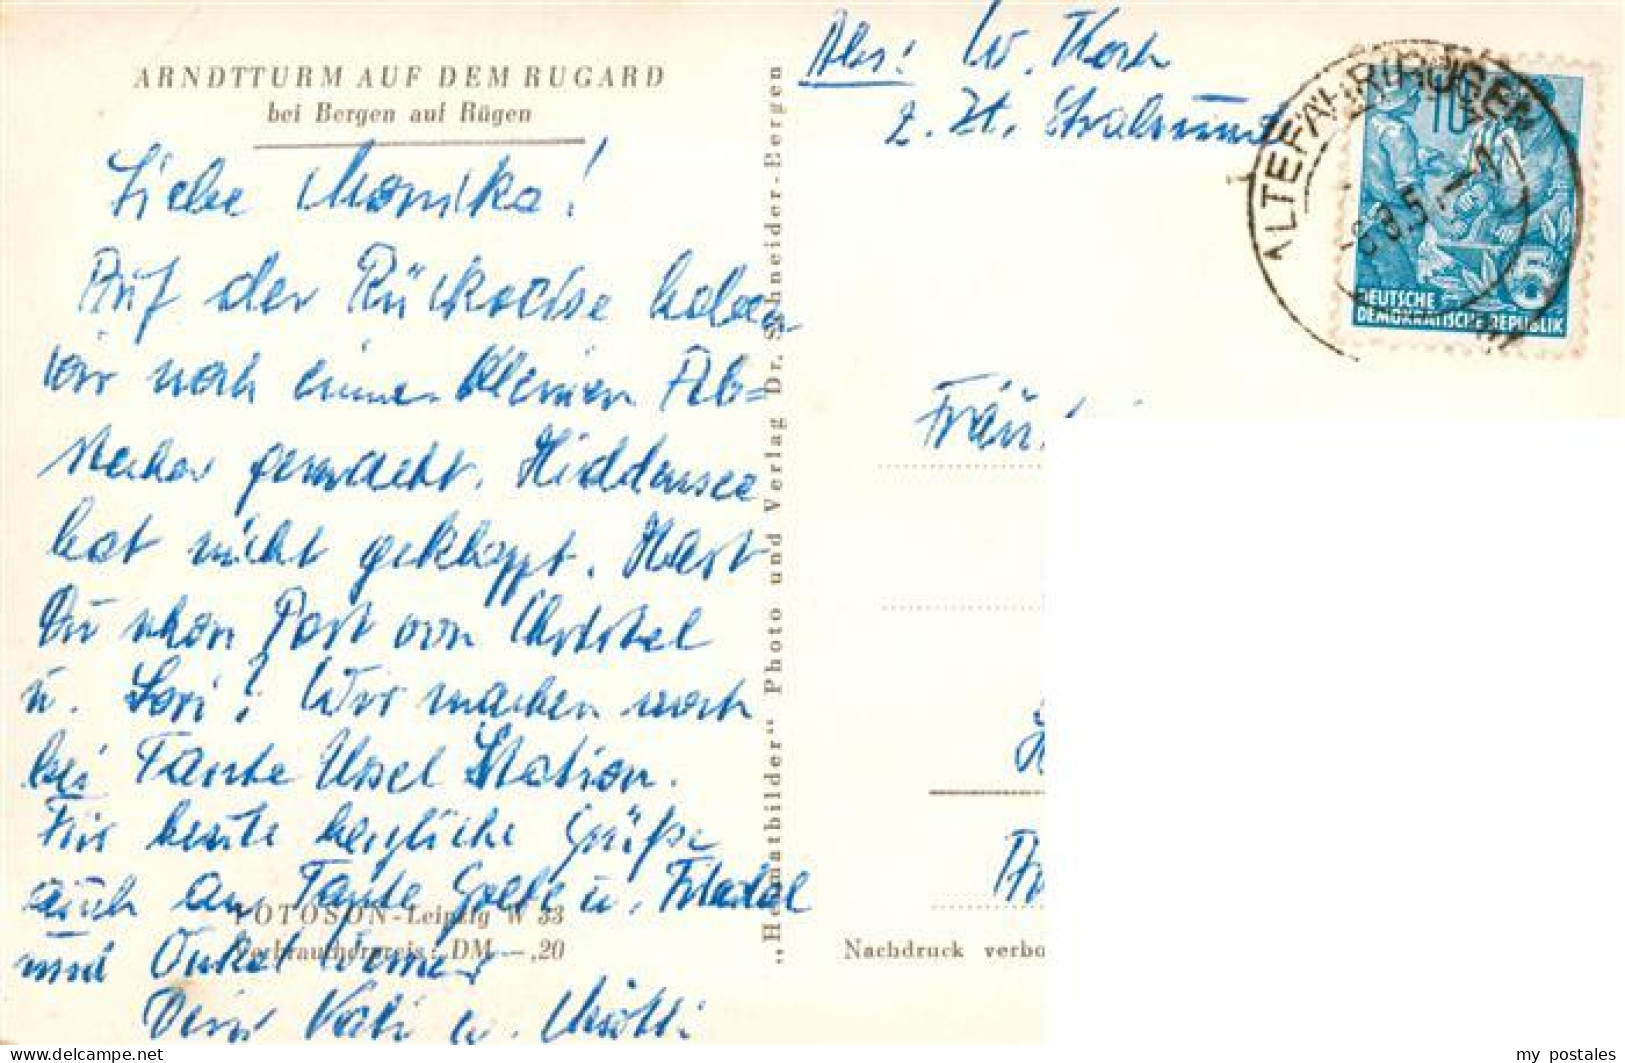 ARNDTTURM AUF DEM RUGARD
bei Bergen auf Rügen
Liebe Monika!
Auf der Rückreise haben
wir noch einen kleinen Ab=
stecher gemacht. Hiddensee
hat nicht geklappt. Hast
Du schon Post von Christel
u. Lori? Wir machen noch
bei Tante Ursel Station.
Für heute herzliche Grüße
auch an Tante u.
und Onkel Werner
Dein Vati u. Mutti
FOTOSON-Leipzig W 33
Verbraucherpreis: DM -,20
„Heimatbilder" Photo und Verlag Dr. Schneider-Bergen
Abs: W.
z. Zt. Stralsund
ALTEFÄHR (RÜGEN)
10
5
DEUTSCHE
DEMOKRATISCHE REPUBLIK
Fräul
Nachdruck verbo
my_postales
www.delcampe.net